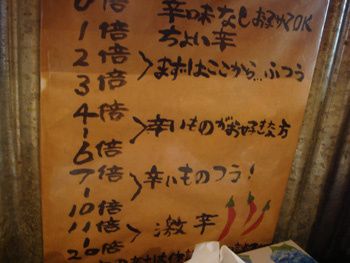 0倍 辛味なしお子様OK
1倍 ちょい辛
2倍
3倍 まずはここから…ふつう
4-6倍 辛いものがお好きな方
7-10倍 辛いものツウ!
11-20倍 激辛